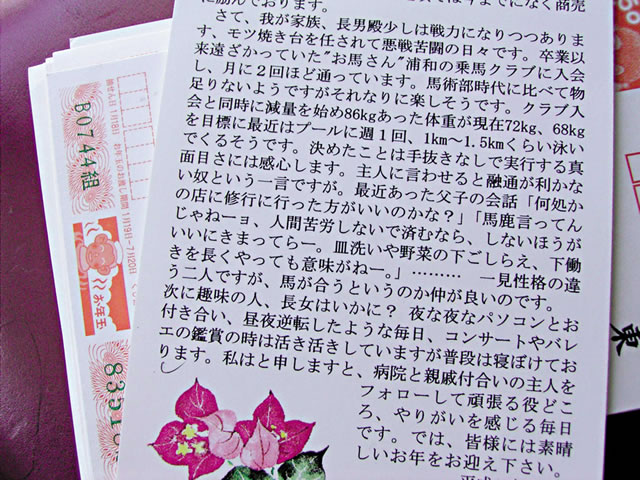 に励んでおります。
さて、我が家族、長男殿少しは戦力になりつつありま
す、モツ焼き台を任されて悪戦苦闘の日々です。卒業以
来遠ざかっていた"お馬さん"浦和の乗馬クラブに入会
し、月に２回ほど通っています。馬術部時代に比べて物
足りないようですがそれなりに楽しそうです。クラブ入
会と同時に減量を始め86kgあった体重が現在72kg、68kg
を目標に最近はプールに週１回、1km～1.5kmくらい泳い
でくるそうです。決めたことは手抜きなしで実行する真
面目さには感心します。主人に言わせると融通が利かな
い奴という一言ですが。最近あった父子の会話「何処か
の店に修行に行った方がいいのかな？」「馬鹿言ってん
じゃねーョ、人間苦労しないで済むなら、しないほうが
いいにきまってらー。皿洗いや野菜の下ごしらえ、下働
きを長くやっても意味がねー。」………　一見性格の違
う二人ですが、馬が合うというのか仲が良いのです。
次に趣味の人、長女はいかに？ 夜な夜なパソコンとお
付き合い、昼夜逆転したような毎日、コンサートやバレ
エの鑑賞の時は活き活きしていますが普段は寝ぼけてお
ります。私はと申しますと、病院と親戚付合いの主人を
フォローして頑張る役どこ
ろ、やりがいを感じる毎日
です。では、皆様には素晴
しいお年をお迎え下さい。
B0744組
お年玉
東